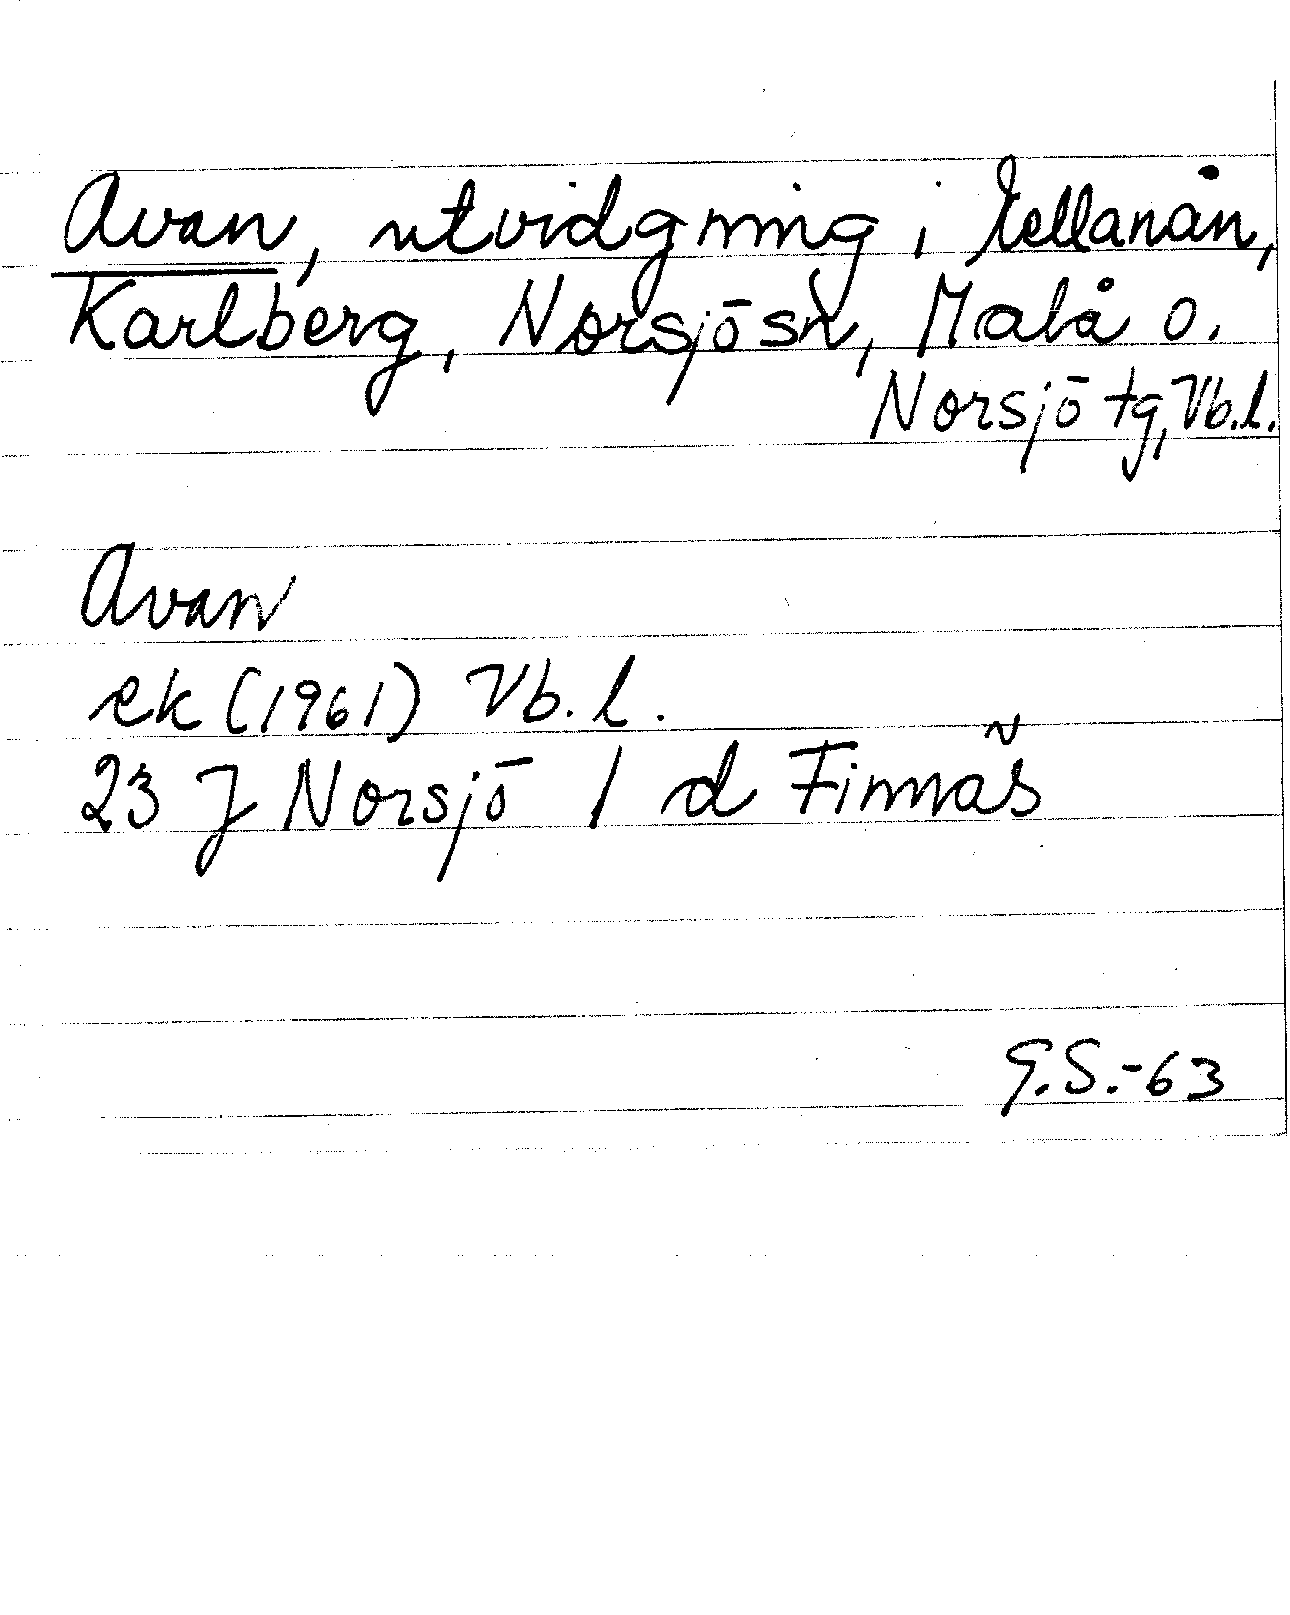 Avan, utvidgning i
Karlberg, Norsjö sn, Malå o.
Norsjö tg, Vb.l.
Avan
ek (1961) Vb. l.
23 J Norsjö 1 d Finnäs
G.S.-63